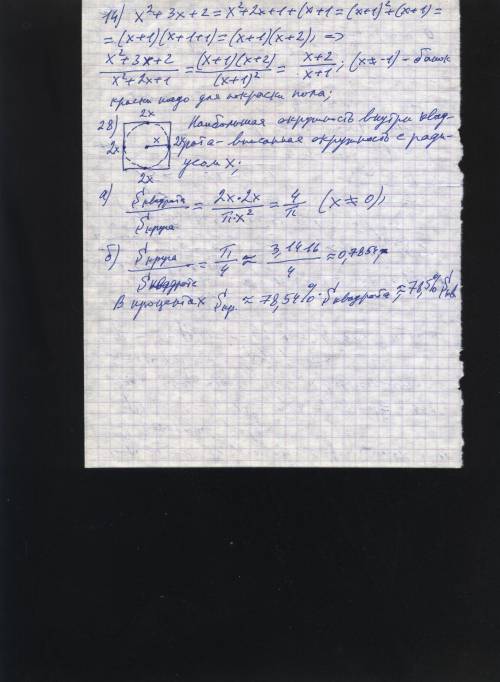 14) x²+3x+2 = x²+2x+1+(x+1 = (x+1)²+(x+1) =
= (x+1)(x+1+1) = (x+1)(x+2), =>
x²+3x+2 / x²+2x+1 = (x+1)(x+2) / (x+1)² = x+2 / x+1; (x≠-1) - банок
краски надо для покраски пола;
28) 2x Наибольшая окружность внутри квад-
2x x 2x рата - вписанная окружность с ради-
2x усом x;
а) Sквадрата / Sкруга = 2x·2x / π·x² = 4 / π (x≠0),
б) Sкруга / Sквадрата = π / 4 ≈ 3,1416 / 4 ≈ 0,7854
В процентах Sкр. ≈ 78,54% Sквадрата ≈ 78,5% Sкв